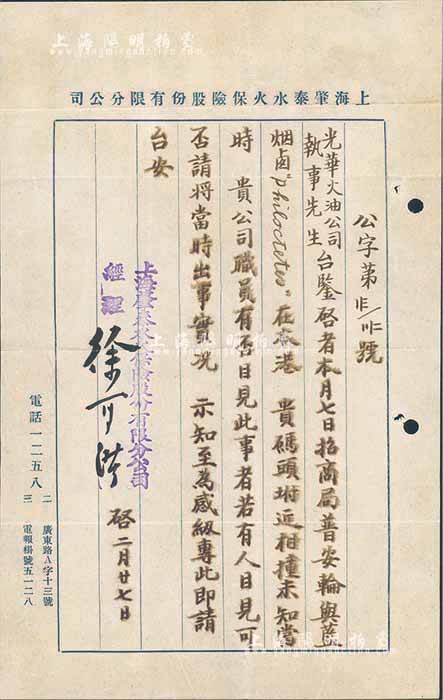 上海肇泰水火保險股份有限分公司
公字第 號
光華火油公司
執事先生 台鑒啓者本月七日招商局普安輪與藍
烟囪"Philoctetes"在本港 貴碼頭坿近相撞未知當
時 貴公司職員有否目見此事者若有人目見可
否請將當時出事實況 示知至為感級專此即請
台安
上海肇泰水火保險股份有限分公司
經理
徐可
啓 二月廿七日
電話一二五八
二 廣東路A字十三號
三 電報掛號五一二八
上海陽明拍賣
www.yangmingauction.com